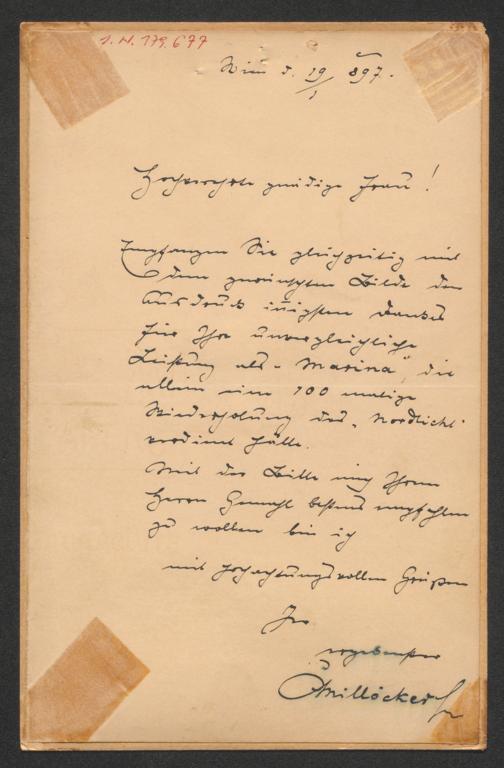 I. N. 179.677
Wien d. 19/1 897.
Hochverehrte gnädige Frau!
Empfangen Sie gleichzeitig mit
dem gewünschten Bilde den
Ausdruck innigsten Dankes
für Ihre unvergleichliche
Leistung als „Marina", die
allein eine 100 malige
Wiederholung des „Nordlicht"
verdient hätte.
Mit der Bitte mich Ihrem
Herrn Gemahl bestens empfehlen
zu wollen bin ich
mit hochachtungsvollen Grüßen
Ihr
ergebenster
CMillöcker